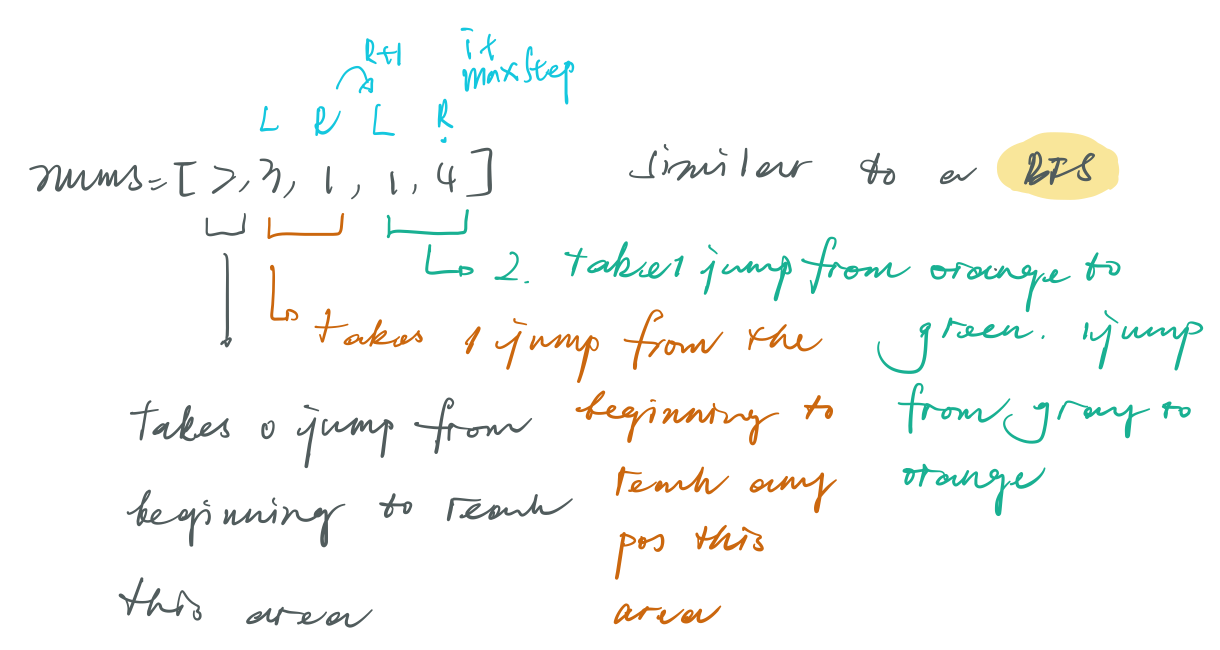 R+1
i+
maxStep
L R L R
nums=[2,3, 1, 1, 4]
similar to a BFS
2. takes 1 jump from orange to
green. 1 jump
from gray to
orange
takes 1 jump from the
beginning to
reach any
pos this
area
takes 0 jump from
beginning to reach
this area